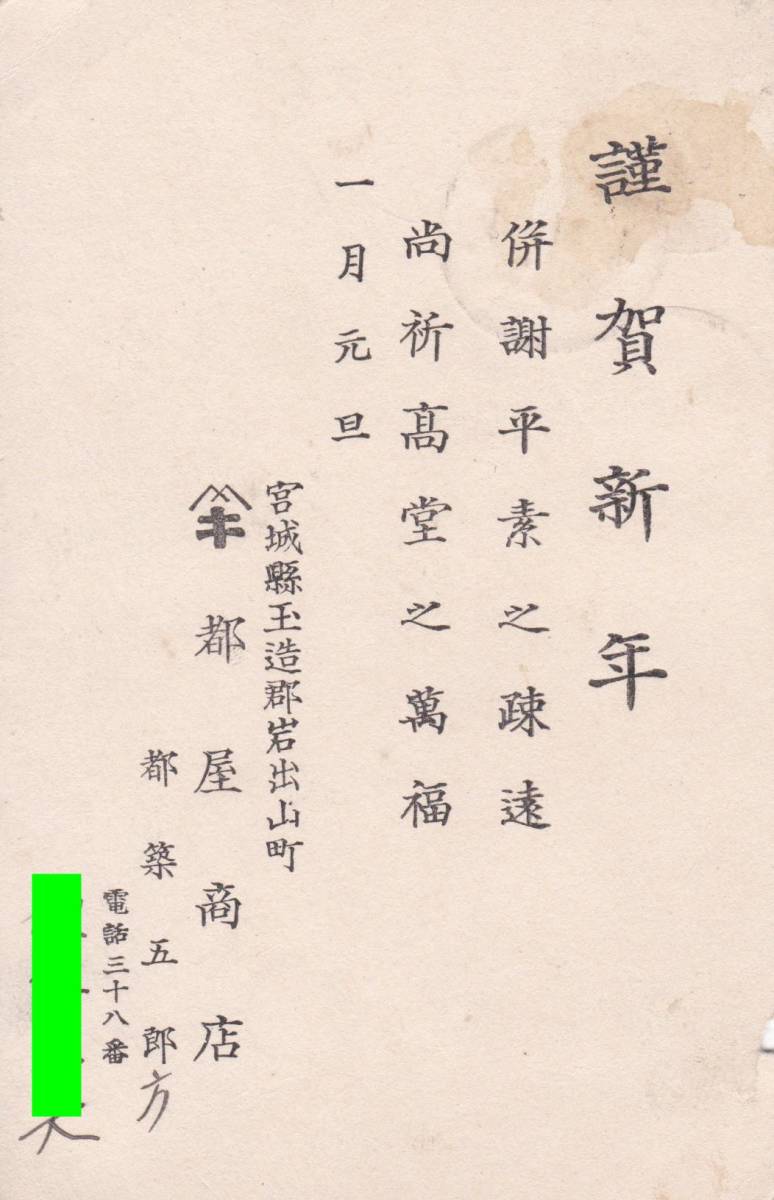 謹賀新年
併謝平素之疎遠
尚祈高堂之萬福
一月元旦
宮城縣玉造郡岩出山町
キ 都屋商店
都築五郎方
電話三十八番